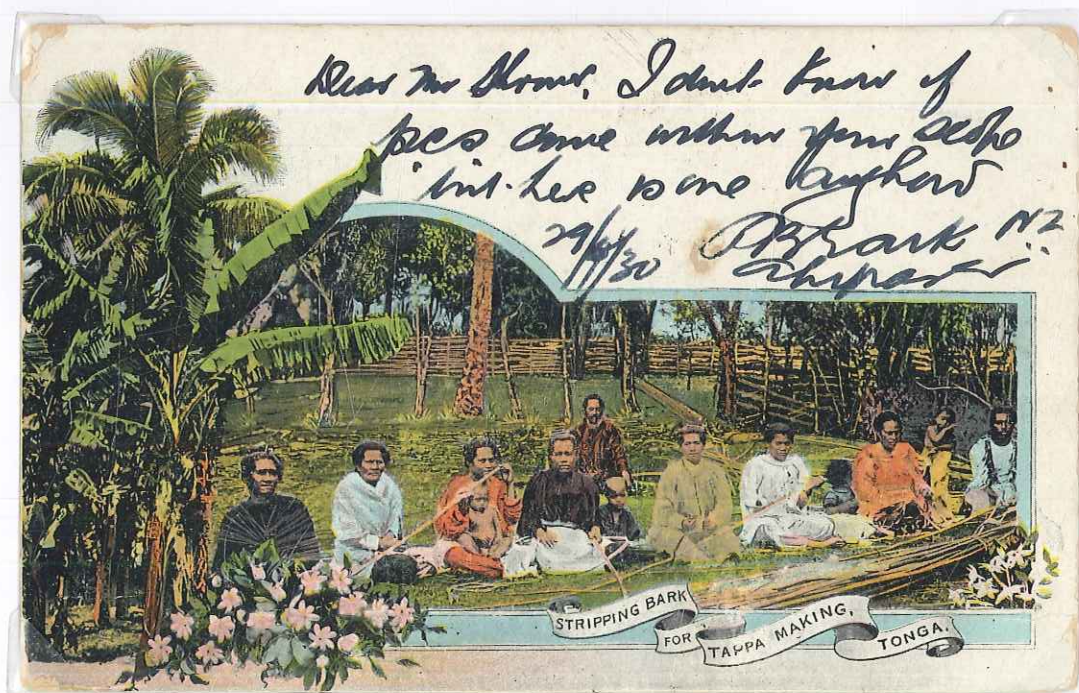 Dear Mr
I don't know if
pcs come within your scope
but here is one anyhow
29/4/30
NZ
STRIPPING BARK
FOR TAPPA MAKING,
TONGA.